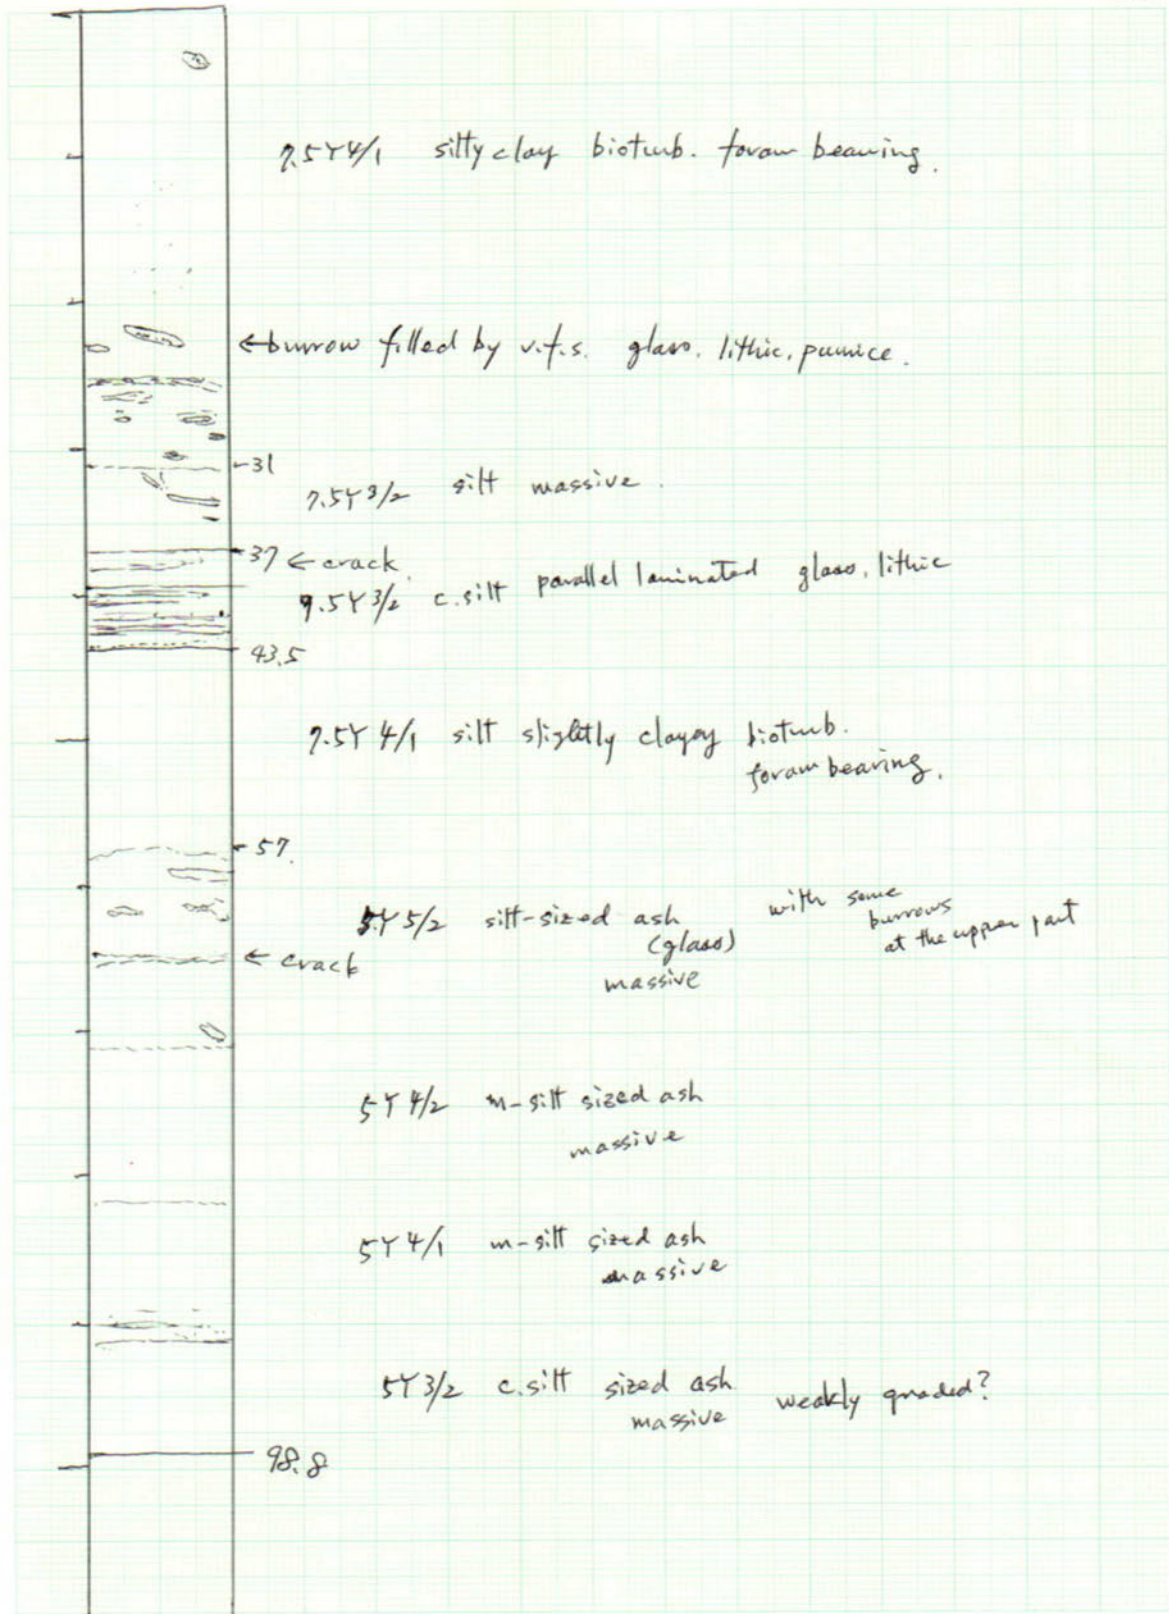 7.5Y 4/1 silty clay bioturb. foram bearing.
←burrow filled by v.f.s. glass. lithic. pumice.
31
7.5Y 3/2 silt massive.
37 ← crack
7.5Y 3/2 c.silt parallel laminated glass, lithic
43.5
7.5Y 4/1 silt slightly clayey bioturb.
foram bearing.
57
5Y 5/2 silt-sized ash with some
(glass) burrows
massive at the upper part
← crack
5Y 4/2 m-silt sized ash
massive
5Y 4/1 m-silt sized ash
massive
5Y 3/2 c.silt sized ash weakly graded?
massive
98.8